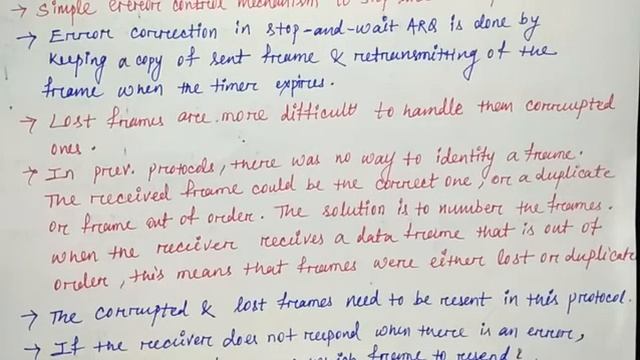 → Simple error control mechanism to stop
→ Error correction in stop-and-wait ARQ is done by
keeping a copy of sent frame & retransmitting of the
frame when the timer expires.
→ Lost frames are more difficult to handle them corrupted
ones.
→ In prev. protocols, there was no way to identify a frame.
The received frame could be the correct one, or a duplicate
or frame out of order. The solution is to number the frames.
when the receiver receives a data frame that is out of
order, this means that frames were either lost or duplicate
→ The corrupted & lost frames need to be resent in this protocol.
→ If the receiver does not respond when there is an error,
which frame to resend?